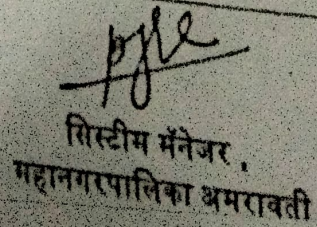 सिस्टीम मॅनेजर .
महानगरपालिका अमरावती